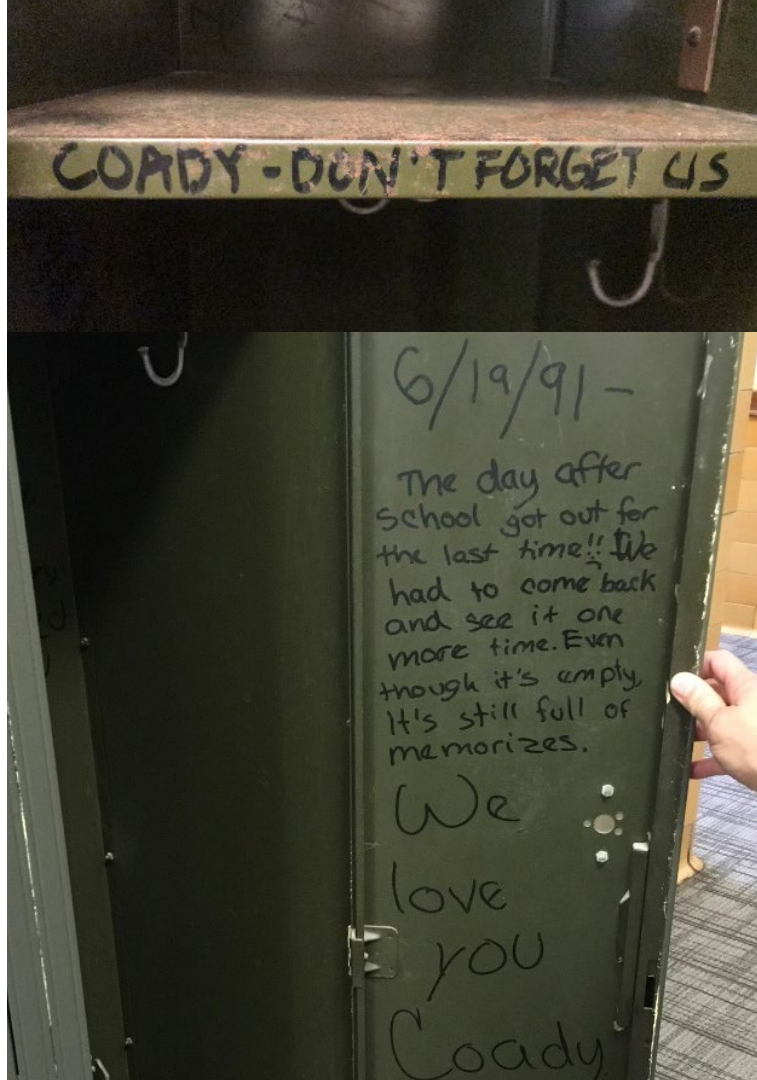 COADY - DON'T FORGET US
6/19/91 -
The day after
school got out for
the last time!! We
had to come back
and see it one
more time. Even
though it's empty,
It's still full of
memorizes.
We
love
you
Coady